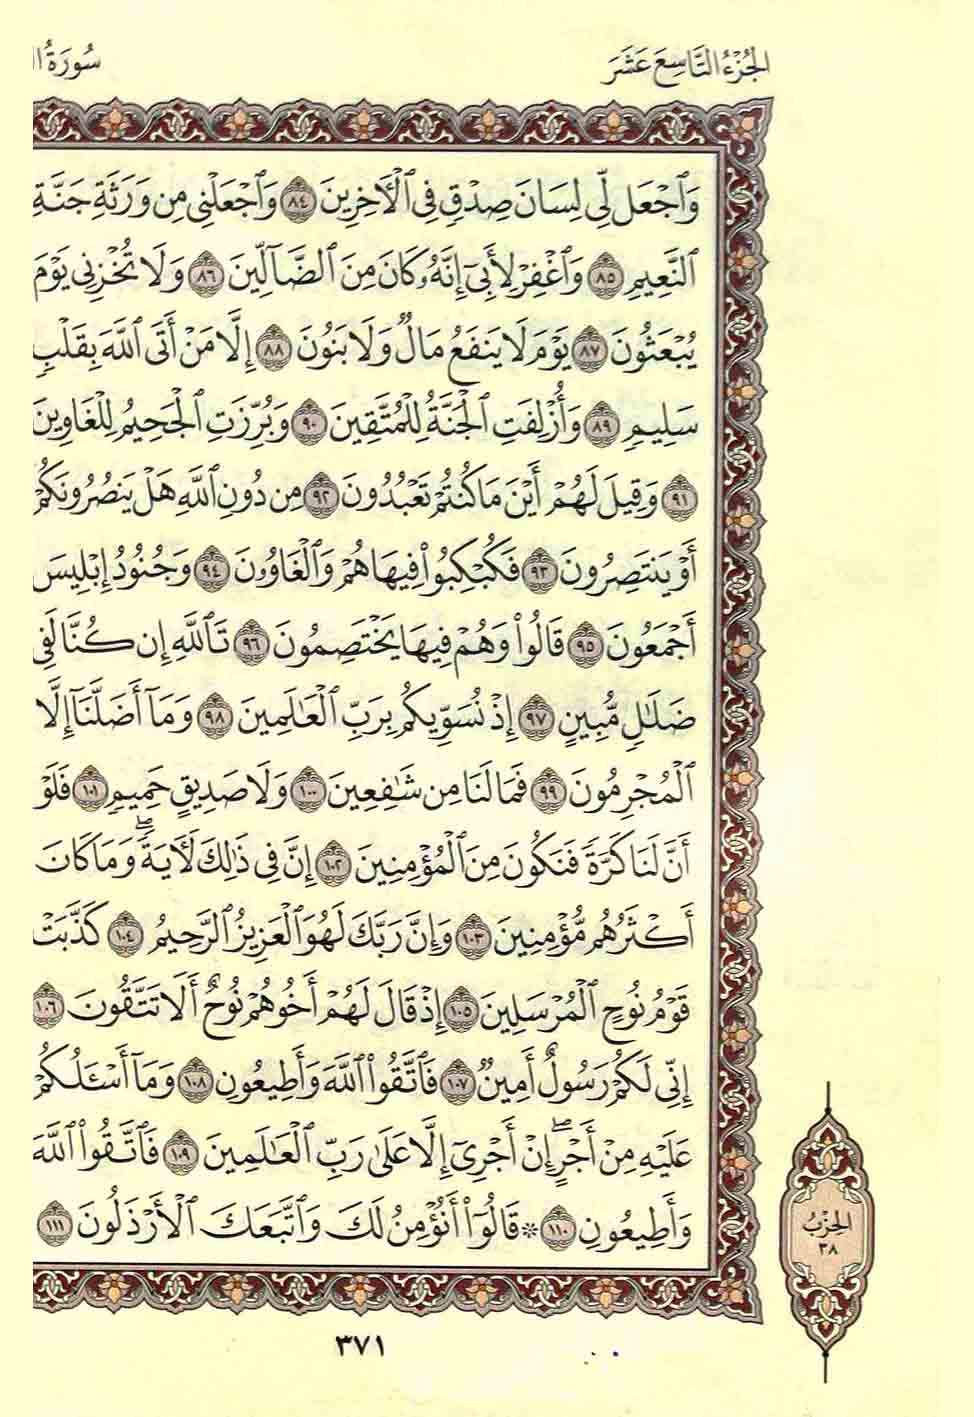 الجُزْءُ التَّاسِعَ عَشَرَ
سُورَةُ ا
وَٱجْعَل لِّى لِسَانَ صِدْقٍ فِى ٱلْآخِرِينَ ٨٤ وَٱجْعَلْنِى مِن وَرَثَةِ جَنَّةِ
ٱلنَّعِيمِ ٨٥ وَٱغْفِرْ لِأَبِىٓ إِنَّهُۥ كَانَ مِنَ ٱلضَّآلِّينَ ٨٦ وَلَا تُخْزِنِى يَوْمَ
يُبْعَثُونَ ٨٧ يَوْمَ لَا يَنفَعُ مَالٌ وَلَا بَنُونَ ٨٨ إِلَّا مَنْ أَتَى ٱللَّهَ بِقَلْبٍ
سَلِيمٍ ٨٩ وَأُزْلِفَتِ ٱلْجَنَّةُ لِلْمُتَّقِينَ ٩٠ وَبُرِّزَتِ ٱلْجَحِيمُ لِلْغَاوِينَ
٩١ وَقِيلَ لَهُمْ أَيْنَ مَا كُنتُمْ تَعْبُدُونَ ٩٢ مِن دُونِ ٱللَّهِ هَلْ يَنصُرُونَكُمْ
أَوْ يَنتَصِرُونَ ٩٣ فَكُبْكِبُوا۟ فِيهَا هُمْ وَٱلْغَاوُۥنَ ٩٤ وَجُنُودُ إِبْلِيسَ
أَجْمَعُونَ ٩٥ قَالُوا۟ وَهُمْ فِيهَا يَخْتَصِمُونَ ٩٦ تَٱللَّهِ إِن كُنَّا لَفِى
ضَلَٰلٍ مُّبِينٍ ٩٧ إِذْ نُسَوِّيكُم بِرَبِّ ٱلْعَٰلَمِينَ ٩٨ وَمَآ أَضَلَّنَآ إِلَّا
ٱلْمُجْرِمُونَ ٩٩ فَمَا لَنَا مِن شَٰفِعِينَ ١٠٠ وَلَا صَدِيقٍ حَمِيمٍ ١٠١ فَلَوْ
أَنَّ لَنَا كَرَّةً فَنَكُونَ مِنَ ٱلْمُؤْمِنِينَ ١٠٢ إِنَّ فِى ذَٰلِكَ لَءَايَةً ۖ وَمَا كَانَ
أَكْثَرُهُم مُّؤْمِنِينَ ١٠٣ وَإِنَّ رَبَّكَ لَهُوَ ٱلْعَزِيزُ ٱلرَّحِيمُ ١٠٤ كَذَّبَتْ
قَوْمُ نُوحٍ ٱلْمُرْسَلِينَ ١٠٥ إِذْ قَالَ لَهُمْ أَخُوهُمْ نُوحٌ أَلَا تَتَّقُونَ ١٠٦
إِنِّى لَكُمْ رَسُولٌ أَمِينٌ ١٠٧ فَٱتَّقُوا۟ ٱللَّهَ وَأَطِيعُونِ ١٠٨ وَمَآ أَسْـَٔلُكُمْ
عَلَيْهِ مِنْ أَجْرٍ ۖ إِنْ أَجْرِىَ إِلَّا عَلَىٰ رَبِّ ٱلْعَٰلَمِينَ ١٠٩ فَٱتَّقُوا۟ ٱللَّهَ
وَأَطِيعُونِ ١١٠ * قَالُوٓا۟ أَنُؤْمِنُ لَكَ وَٱتَّبَعَكَ ٱلْأَرْذَلُونَ ١١١
الحِزْبُ
٣٨
٣٧١